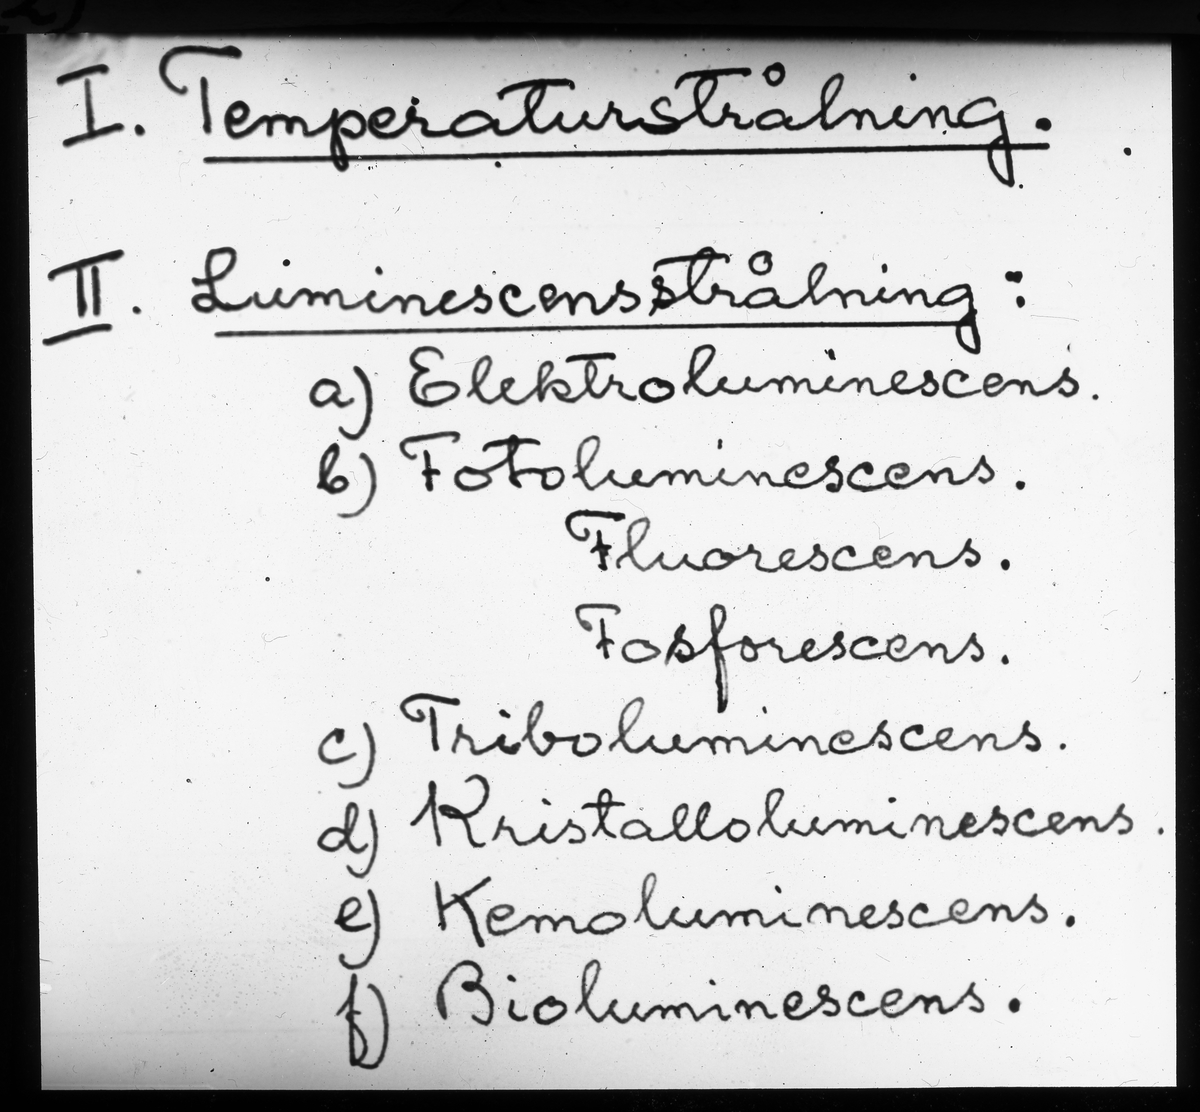 2)
I. Temperaturstrålning.
II. Luminescensstrålning:
a) Elektroluminescens.
b) Fotoluminescens.
Fluorescens.
Fosforescens.
c) Triboluminescens.
d) Kristalloluminescens.
e) Kemoluminescens.
f) Bioluminescens.